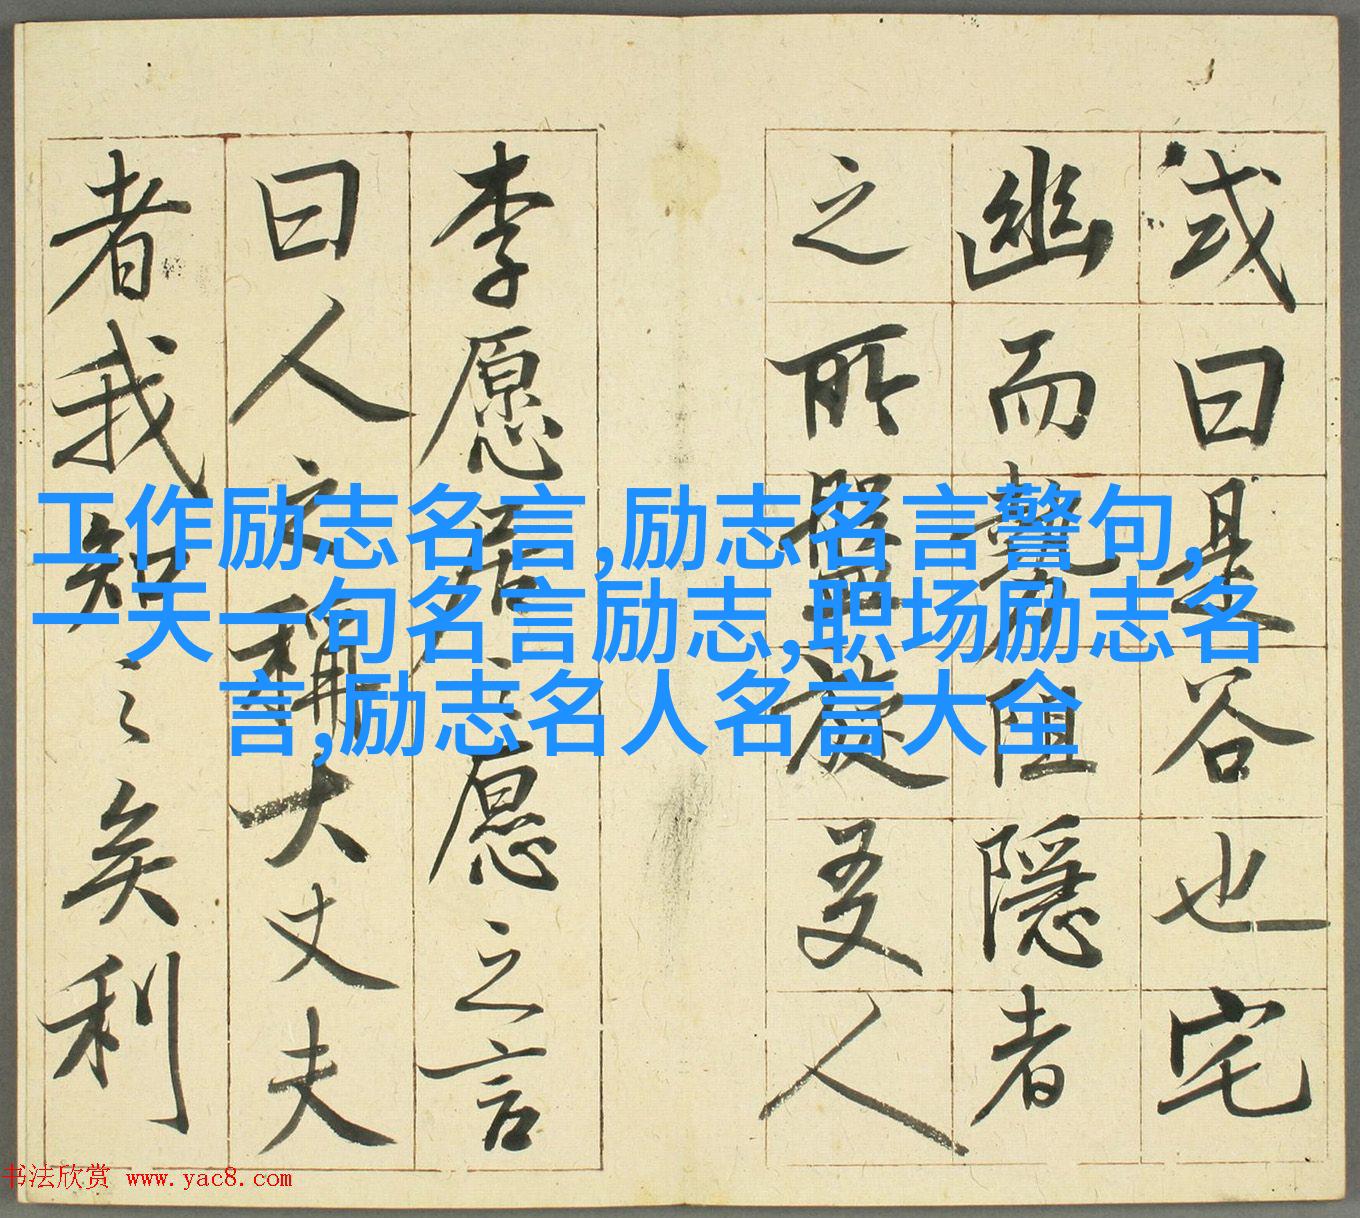 或曰是谷也宅
幽而勢阻隱者
之所盤旋友人
李愿居之愿之言
曰人之稱大丈夫
者我知之矣利
工作励志名言,励志名言警句,
一天一句名言励志,职场励志名
言,励志名人名言大全
书法欣赏 www.yac8.com